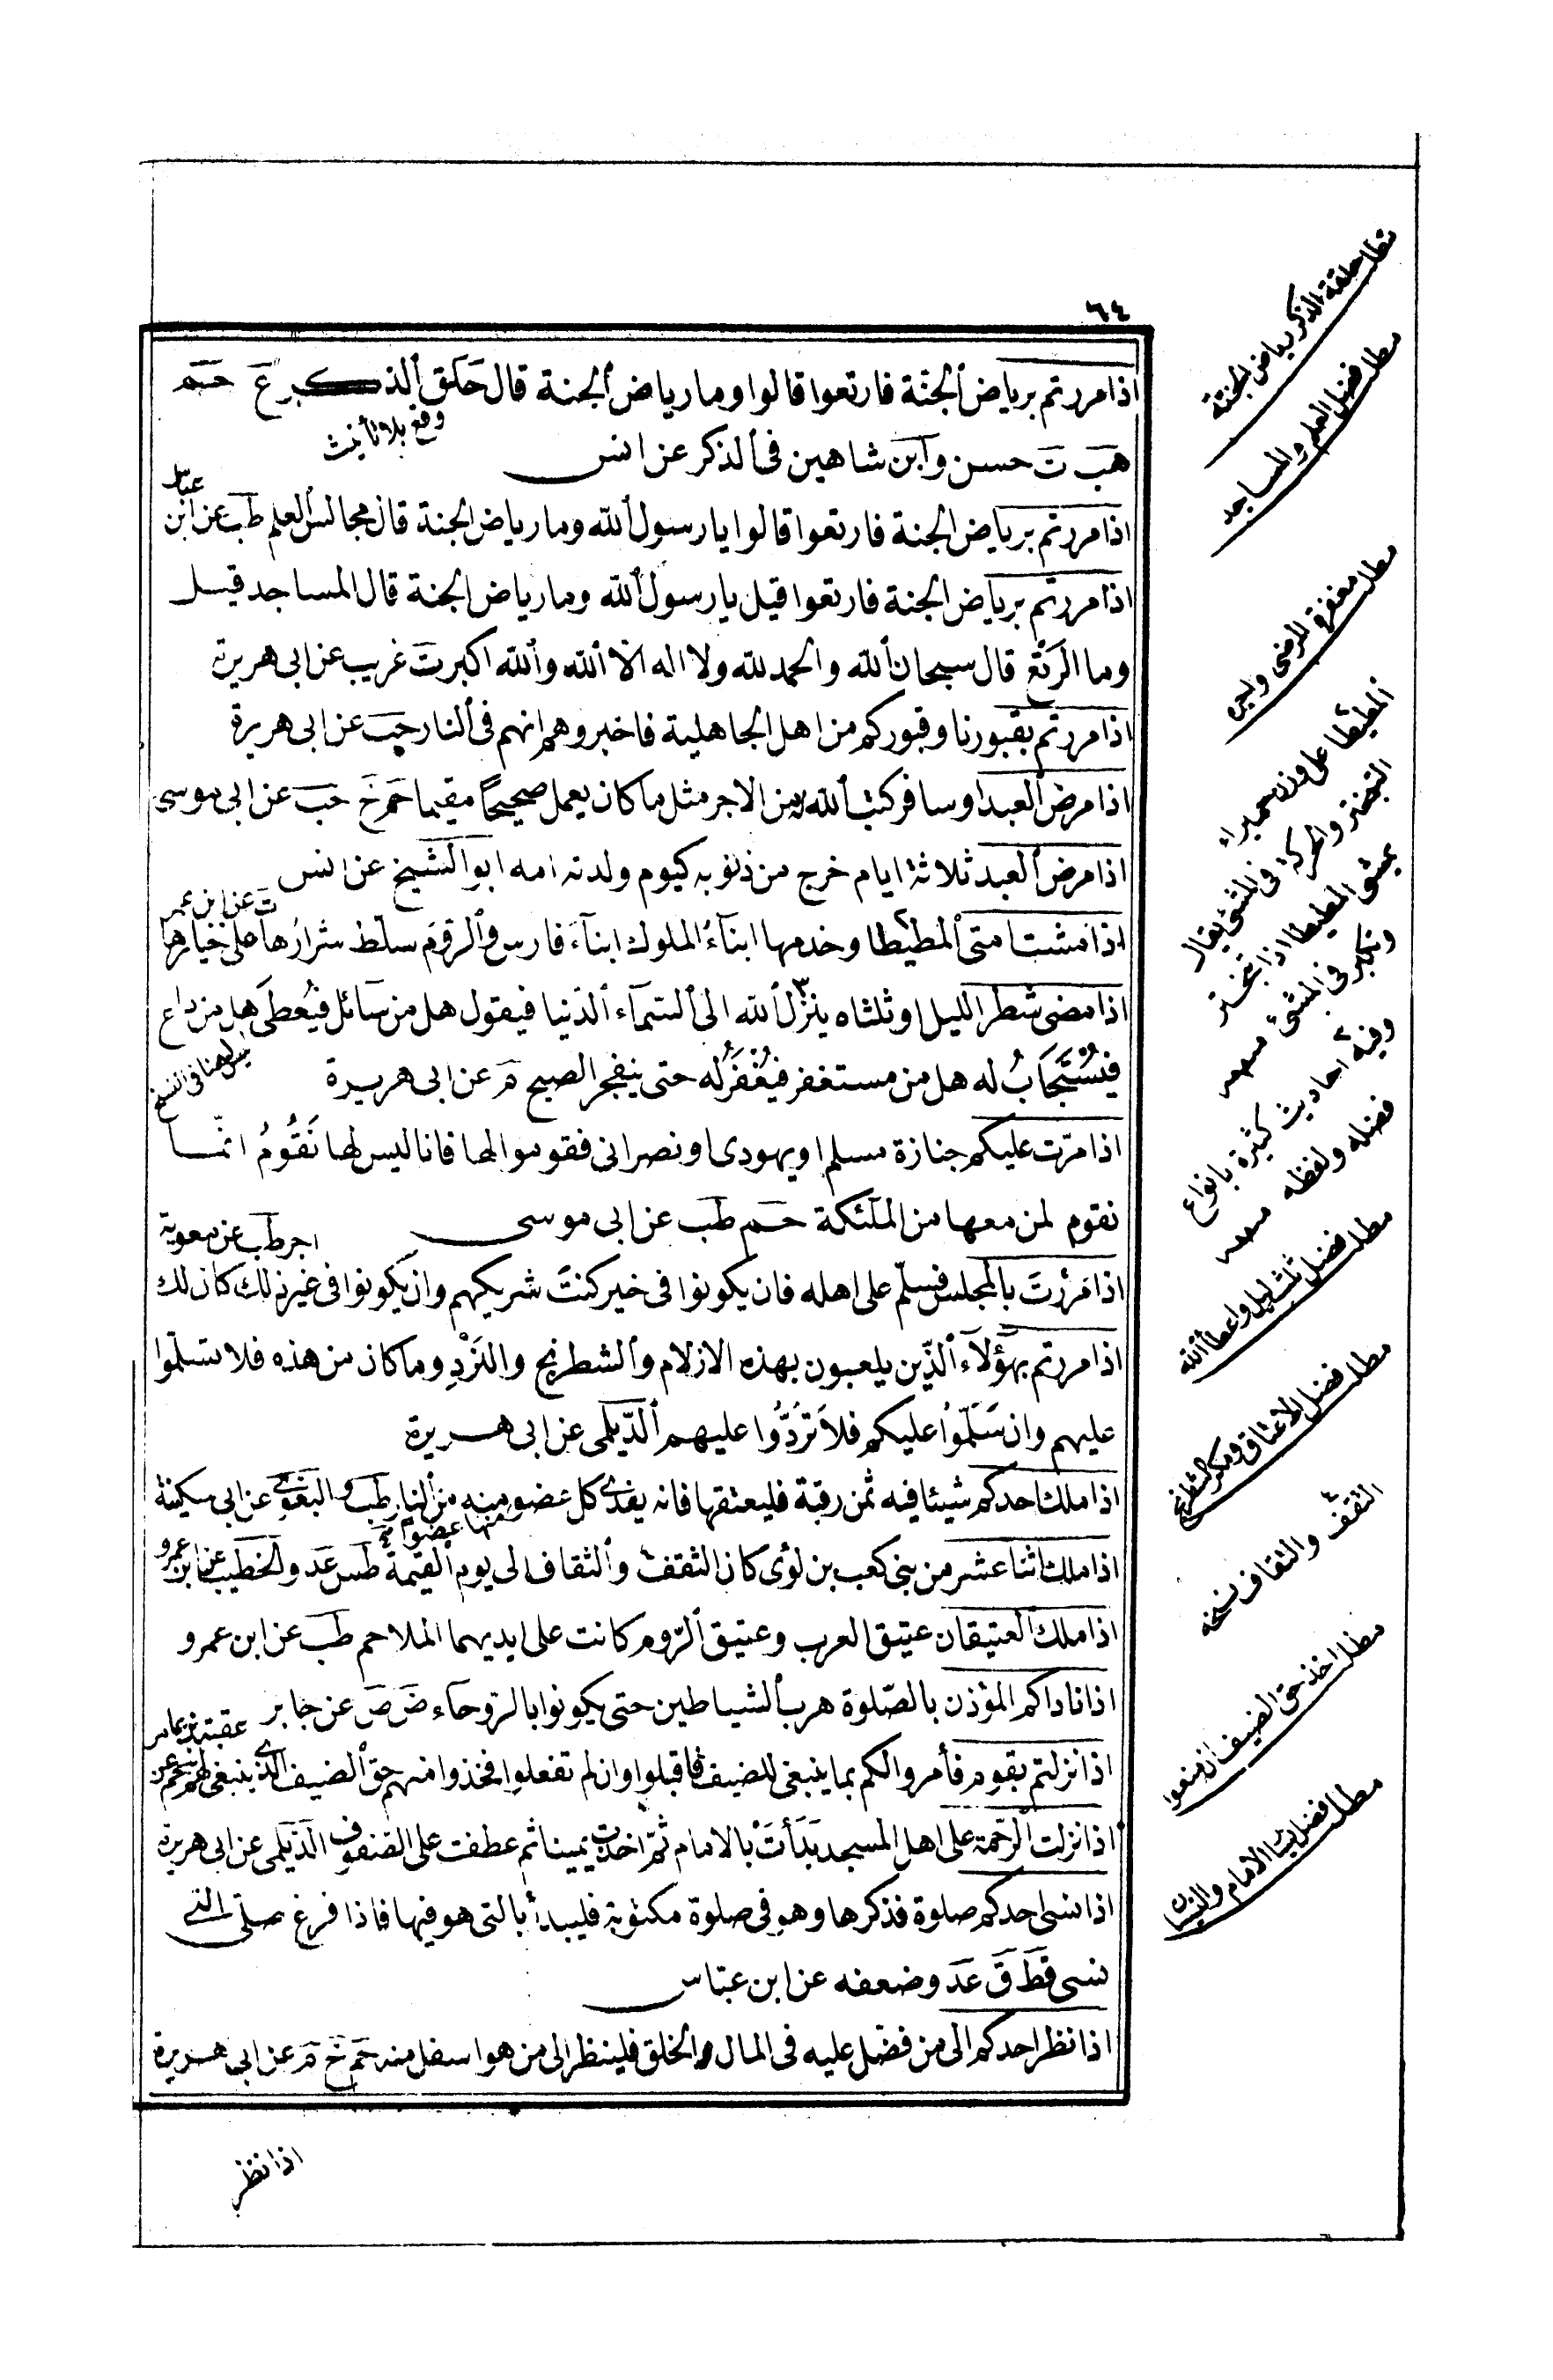 ٦٤
اذا مررتم برياض الجنة فارتعوا قالوا وما رياض الجنة قال حلق الذكر ع حم
وقع بلا تأنيث
هب ت حسن وابن شاهين فى الذكر عن انس
اذا مررتم برياض الجنة فارتعوا قالوا يا رسول الله وما رياض الجنة قال مجالس العلم طب عن ابن عباس
اذا مررتم برياض الجنة فارتعوا قيل يا رسول الله وما رياض الجنة قال المساجد قيل
وما الرتع قال سبحان الله والحمد لله ولا اله الا الله والله اكبر ت غريب عن ابى هريرة
اذا مررتم بقبورنا وقبوركم من اهل الجاهلية فاخبروهم انهم فى النار حب عن ابى هريرة
اذا مرض العبد او سافر كتب الله له من الاجر مثل ما كان يعمل صحيحًا مقيما حم خ حب عن ابى موسى
اذا مرض العبد ثلاثة ايام خرج من ذنوبه كيوم ولدته امه ابو الشيخ عن انس
ت عن ابن عمر
اذا مشت امتى المطيطا وخدمها ابناءُ الملوك ابناءُ فارس والروم سلط شرارُها على خيارها
اذا مضى شطر الليل او ثلثاه ينزل الله الى السمآء الدنيا فيقول هل من سآئل فيُعطَى هل من داع
فيُسْتَجَابُ له هل من مستغفر فيُغْفَرُ له حتى ينفجر الصبح م عن ابى هريرة
ليس لهنا فى النسخ
اذا مرّت عليكم جنازة مسلم او يهودى او نصرانى فقوموا لها فانا ليس لها نَقُومُ انما
نقوم لمن معها من الملئكة حم طب عن ابى موسى
اجر طب عن معوية
اذا مَرَرْتَ بالمجلس فسلّم على اهله فان يكونوا فى خير كنتَ شريكهم وان يكونوا فى غير ذلك كان لك
اذا مررتم بهؤلآء الذين يلعبون بهذه الازلام والشطرنج والنَرْدِ وما كان من هذه فلا تسلّموا
عليهم وان سَلّمُوا عليكم فلا تَرُدُّوا عليهم الديلمى عن ابى هريرة
اذا ملك احدكم شيئا فيه ثمن رقبة فليعتقها فانه يفدى كل عضو منه من النار طب والبغوى عن ابى سكينة
منها عضوًا
اذا ملك اثنا عشر من بنى كعب بن لؤى كان الثقف والثقاف الى يوم القيمة طس عد والخطيب عن ابن عمرو
اذا ملك العتيقان عتيق العرب وعتيق الروم كانت على ايديهما الملاحم طب عن ابن عمرو
اذا ناداكم المؤذن بالصلوة هرب الشياطين حتى يكونوا بالروحآء ض ص عن جابر
عقبة بن عامر
اذا نزلتم بقوم فأمروا لكم بما ينبغى للضيف فاقبلوا وان لم تفعلوا فخذوا منهم حق الضيف الذى ينبغى لهم خ حم عن
اذا نزلت الرحمة على اهل المسجد بَدَأَتْ بالامام ثمّ اخذت يمينا ثم عطفت على الصفوف الديلمى عن ابى هريرة
اذا نسى احدكم صلوة فذكرها وهو فى صلوة مكتوبة فليبدأ بالتى هو فيها فاذا فرغ صلى التى
نسى قط ق عد وضعفه عن ابن عباس
اذا نظر احدكم الى من فضّل عليه فى المال والخلق فلينظر الى من هو اسفل منه حم خ م عن ابى هريرة
اذا نظر
مطلب حلقة الذكر رياض الجنة
مطلب فضل العلم والمساجد
مطلب مغفرة المرضى واجره
المطيطا على وزن حميراء
التبختر والحركة فى المشى يقال
يمشى المطيطا اذا تبختر
وتكبر فى المشى
وفيه احاديث كثيرة بانواع
فضله ولفظه
مطلب فضل ثلث ليل واعطاء الله
مطلب فضل الاعتاق ومكر الشطرنج
الثقف والثقاف نسخه
مطلب اخذ حق الضيف ان يمنعوا
مطلب فضل يمين الامام والنسيان